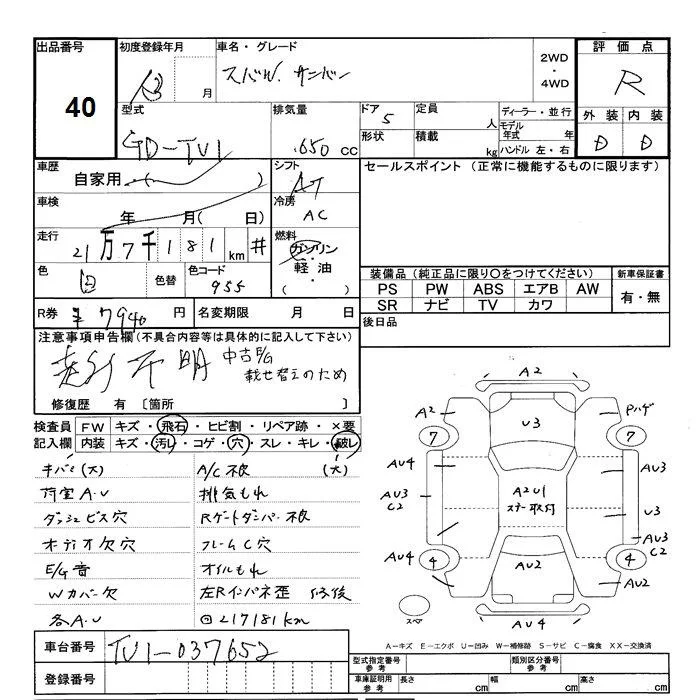 出品番号
40
初度登録年月
月
車名・グレード
スバル サンバー
2WD
・
4WD
評価点
R
外装 内装
D D
型式
GD-TV1
排気量
.650 cc
ドア 5
形状
定員 人
積載 kg
ディーラー・並行
モデル年式 年
ハンドル 左・右
車歴
自家用 ( )
シフト
AT
セールスポイント (正常に機能するものに限ります)
車検
年 月( 日)
冷房
AC
走行
21万7千181km #
燃料
ガソリン
・
軽油
・
( )
色
白
色替
色コード
955
装備品 (純正品に限り○をつけてください)
PS PW ABS エアB AW
SR ナビ TV カワ
新車保証書
有・無
R券 ¥7940 円
名変期限 月 日
後日品
注意事項申告欄(不具合内容等は具体的に記入して下さい)
走行不明 中古E/G
載せ替えのため
修復歴 有 〔箇所 〕
検査員記入欄
FW キズ・飛石・ヒビ割・リペア跡・×要
内装 キズ・汚レ・コゲ・穴・スレ・キレ・破レ
キバミ(大) A/C不良 (大)
荷室A.U 排気もれ
ダッシュビス穴 Rゲートダンパー不良
オーディオ欠穴 フレームC穴
E/G音 オイルもれ
Wカバー欠 左Rインパネ歪
各A.U 217181km
車台番号
TV1-037652
登録番号
A2
A2
U3
Pハゲ
7
7
AU4
AU4
AU3
C2
A2U1
ステー取付
AU3
U3
AU3
C2
AU4
4
4
AU2
AU2
スペア
AU4
A-キズ E-エクボ U-凹み W-補修跡 S-サビ C-腐食 XX-交換済
型式指定番号
参考
類別区分番号
参考
車庫証明用
参考
長さ cm
幅 cm
高さ cm